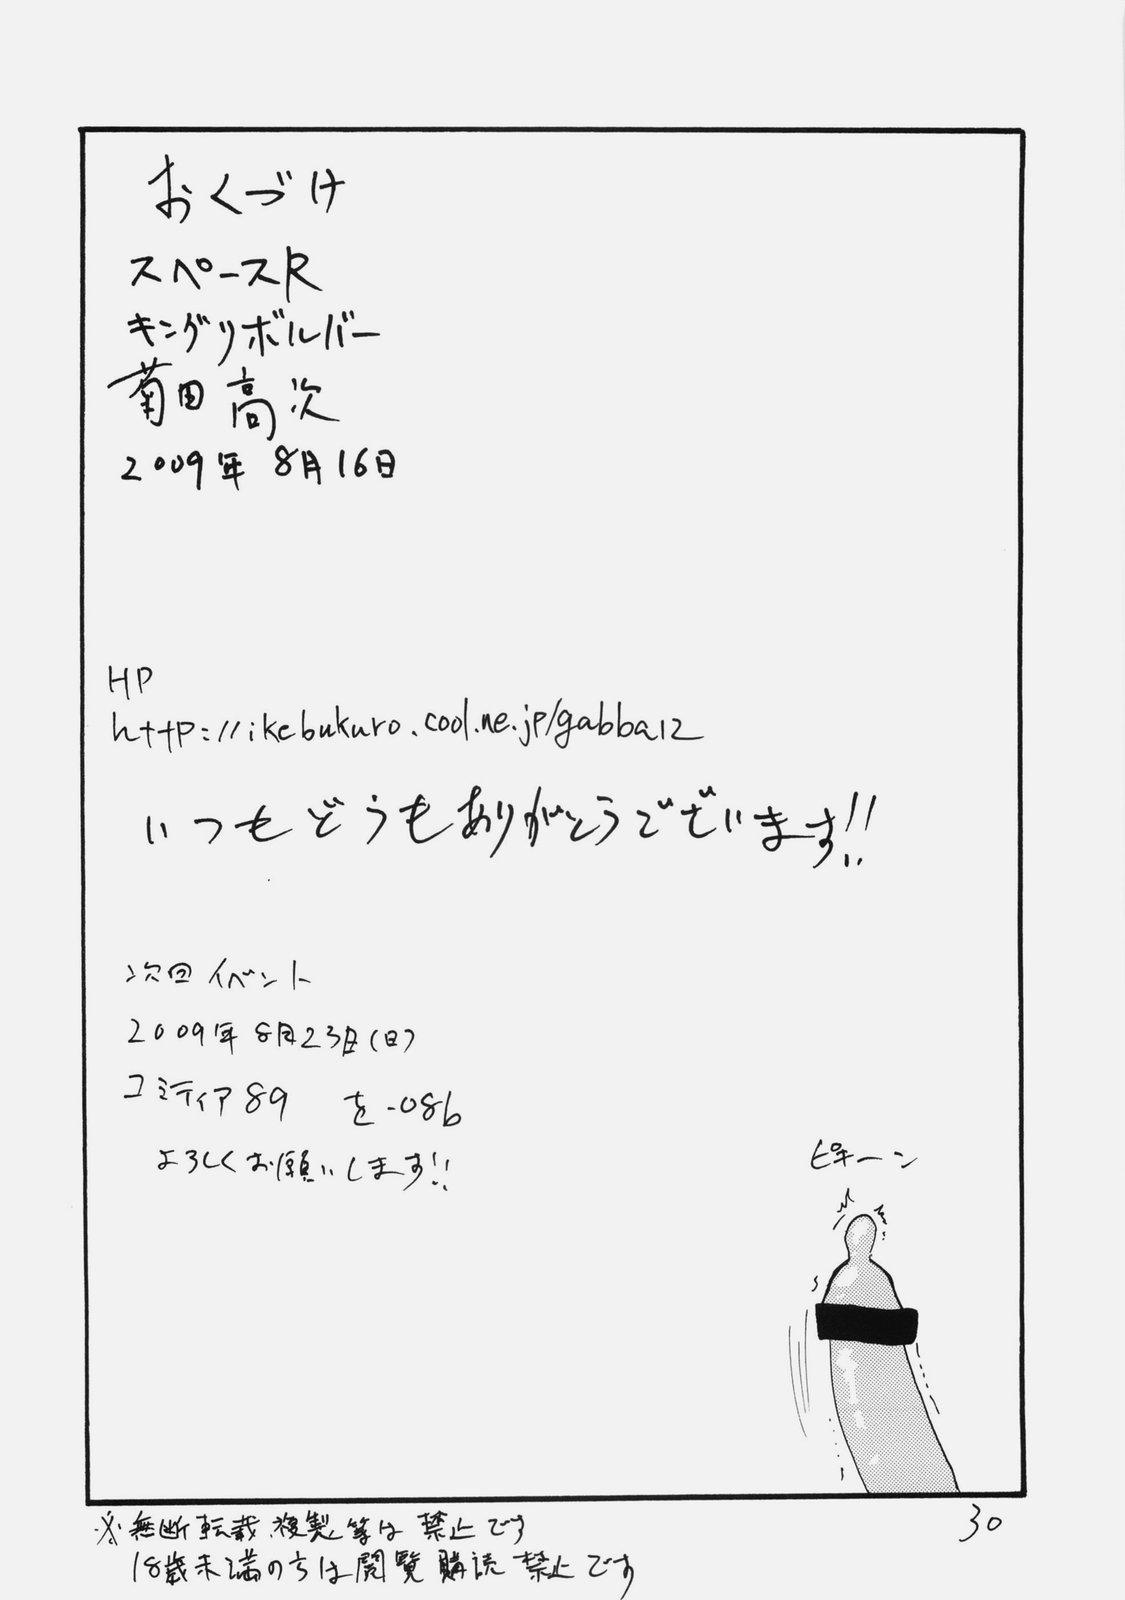 おくづけ
スペースR
キングリボルバー
菊田高次
2009年 8月16日
HP
http://ikebukuro.cool.ne.jp/gabba12
いつもどうもありがとうございます!!
次回イベント
2009年8月23日(日)
コミティア89 を-08b
よろしくお願いします!!
ピキーン
30
※無断転載、複製等は禁止です
18歳未満の方は閲覧購読禁止です